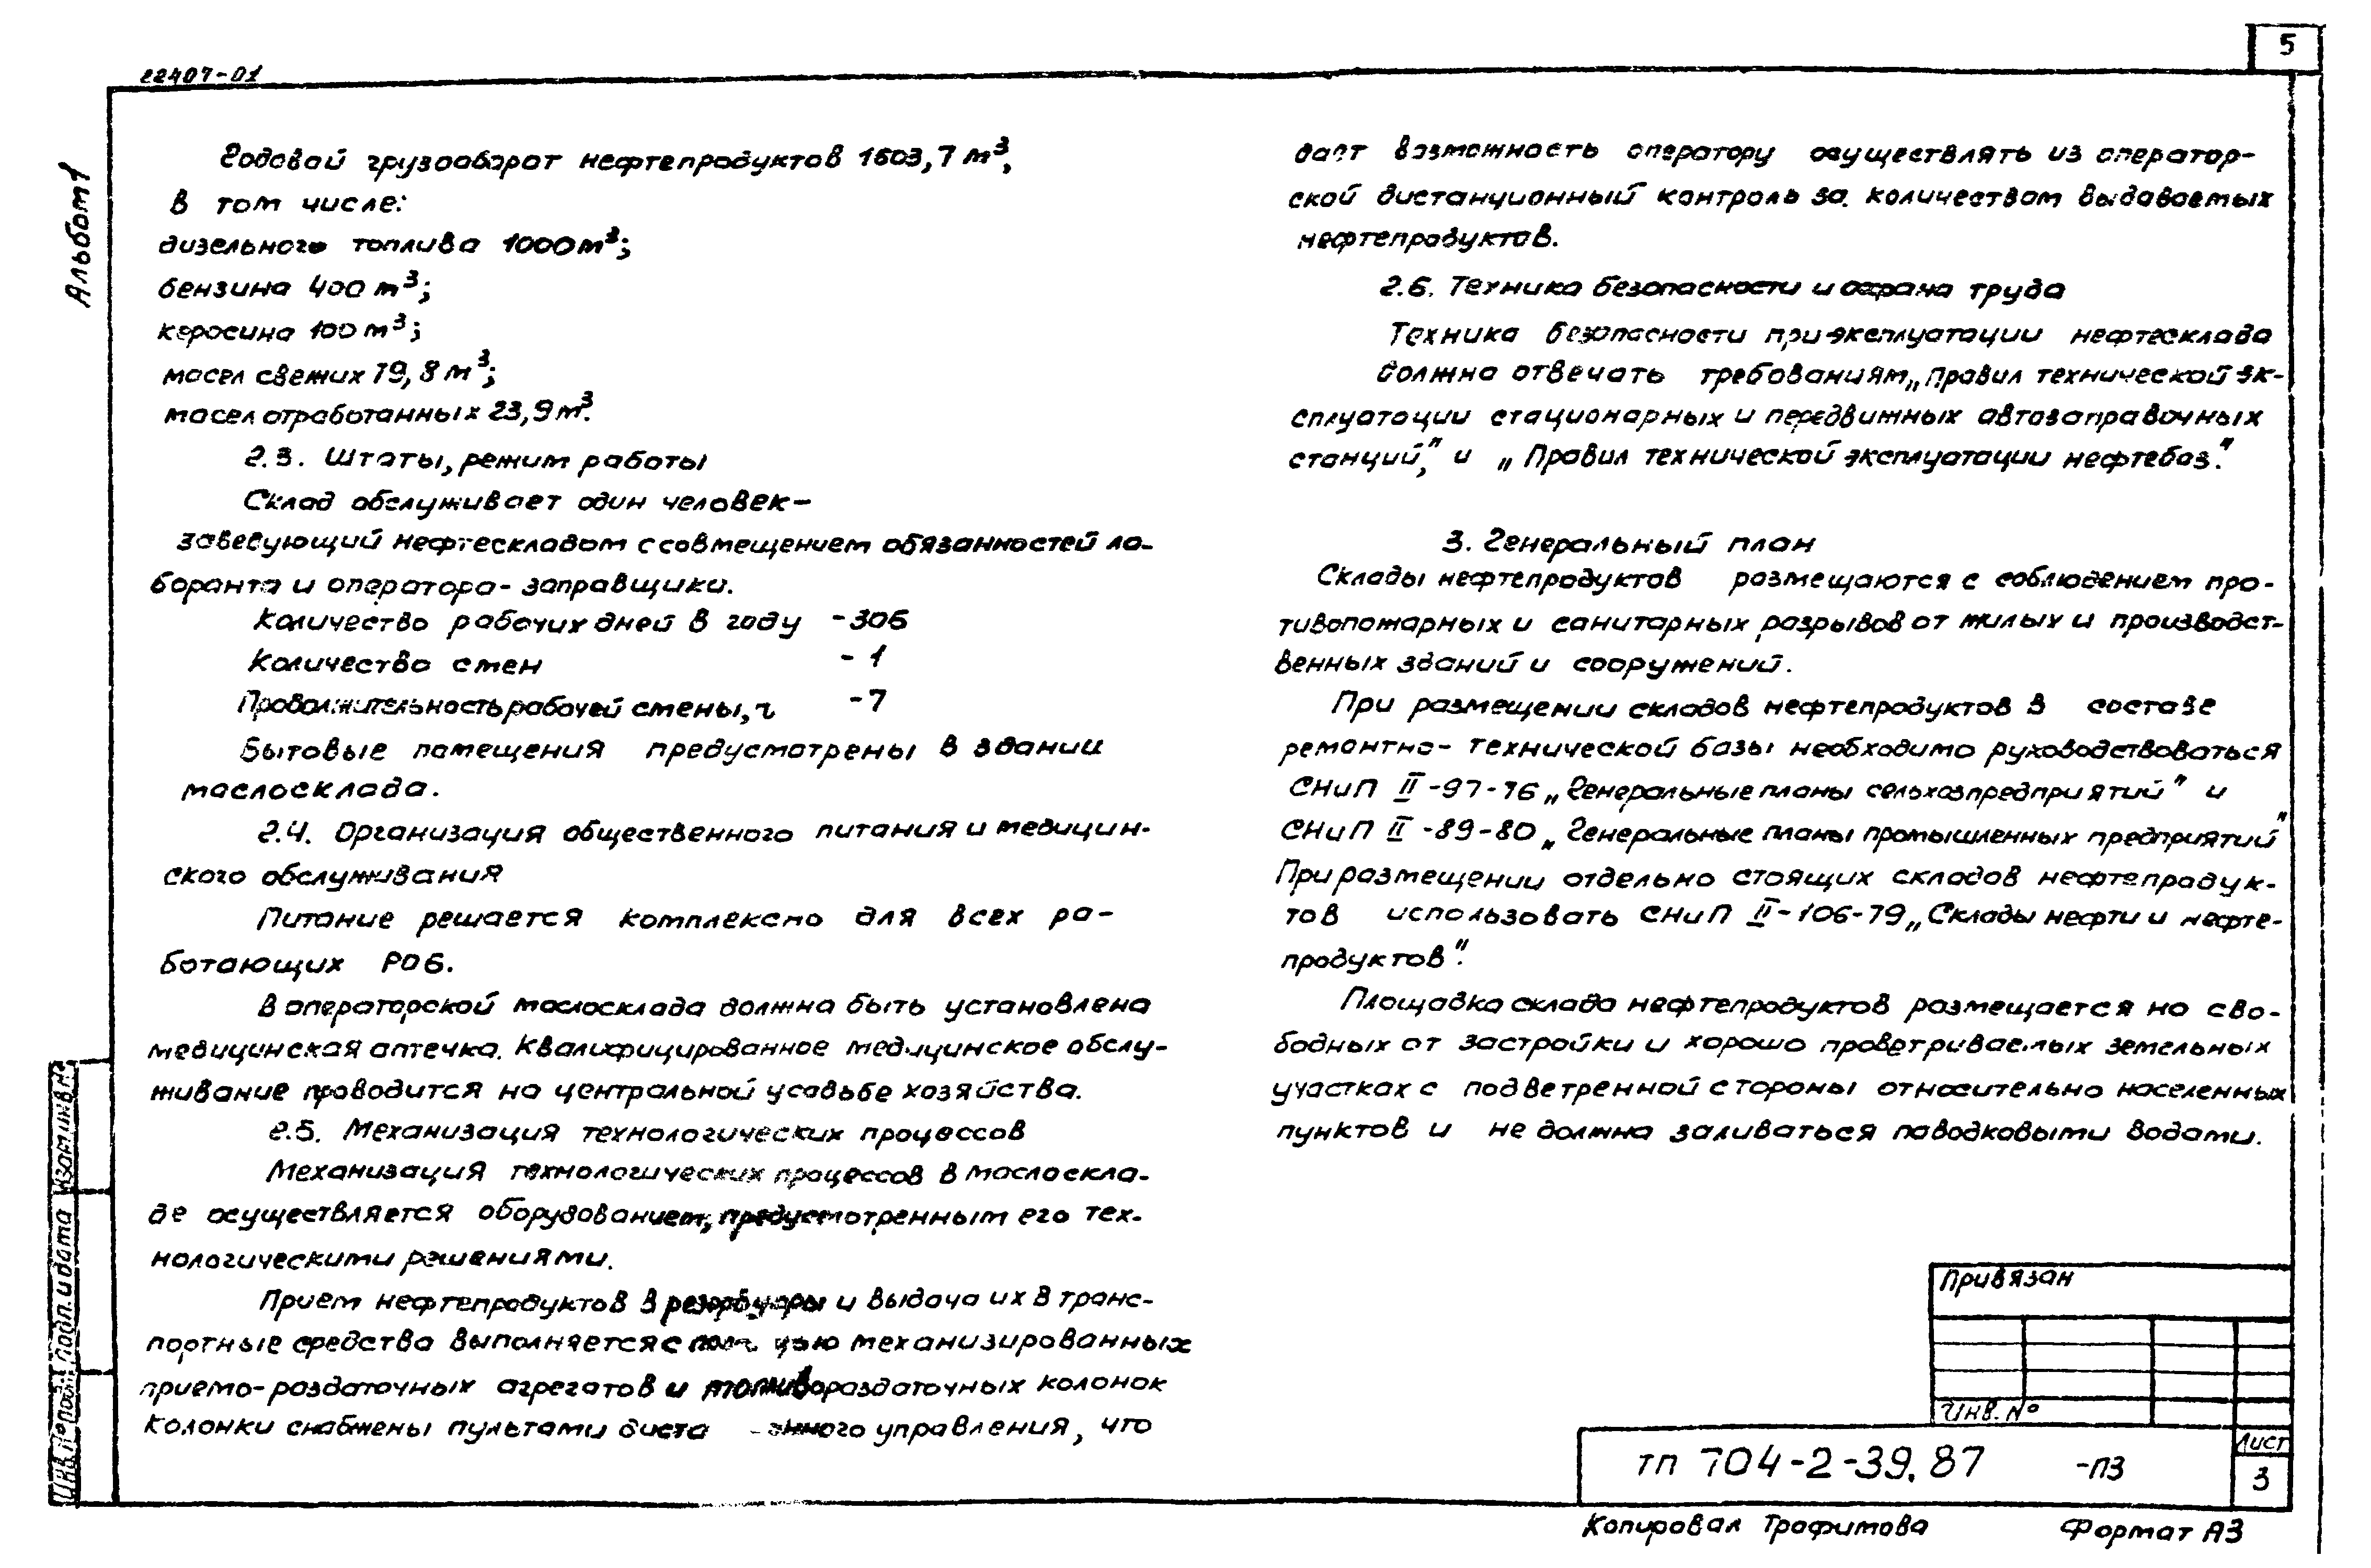 5
22407-01
Альбом 1
Годовой грузооборот нефтепродуктов 1603,7 м³,
в том числе:
дизельного топлива 1000 м³;
бензина 400 м³;
керосина 100 м³;
масел свежих 79,8 м³;
масел отработанных 23,9 м³.
2.3. Штаты, режим работы
Склад обслуживает один человек-
заведующий нефтескладом с совмещением обязанностей ла-
боранта и оператора-заправщика.
Количество рабочих дней в году -306
Количество смен - 1
Продолжительность рабочей смены, ч -7
Бытовые помещения предусмотрены в здании
маслосклада.
2.4. Организация общественного питания и медицин-
ского обслуживания
Питание решается комплексно для всех ра-
ботающих РОБ.
В операторской маслосклада должна быть установлена
медицинская аптечка. Квалифицированное медицинское обслу-
живание проводится на центральной усадьбе хозяйства.
2.5. Механизация технологических процессов
Механизация технологических процессов в маслоскла-
де осуществляется оборудованием, предусмотренным его тех-
нологическими решениями.
Прием нефтепродуктов в резервуары и выдача их в транс-
портные средства выполняется с механизированных
приемо-раздаточных агрегатов и топливораздаточных колонок
Колонки снабжены пультами управления, что
дает возможность оператору осуществлять из оператор-
ской дистанционный контроль за количеством выдаваемых
нефтепродуктов.
2.6. Техника безопасности и охрана труда
Техника безопасности при эксплуатации нефтесклада
должна отвечать требованиям „Правил технической эк-
сплуатации стационарных и передвижных автозаправочных
станций," и „Правил технической эксплуатации нефтебаз".
3. Генеральный план
Склады нефтепродуктов размещаются с соблюдением про-
тивопожарных и санитарных разрывов от жилых и производст-
венных зданий и сооружений.
При размещении складов нефтепродуктов в составе
ремонтно-технической базы необходимо руководствоваться
СНиП II-97-76 „Генеральные планы сельхозпредприятий" и
СНиП II-89-80 „Генеральные планы промышленных предприятий"
При размещении отдельно стоящих складов нефтепродук-
тов использовать СНиП II-106-79 „Склады нефти и нефте-
продуктов".
Площадка склада нефтепродуктов размещается на сво-
бодных от застройки и хорошо проветриваемых земельных
участках с подветренной стороны относительно населенных
пунктов и не должна заливаться паводковыми водами.
Взам инв. №
Подп. и дата
Инв. № подл.
Привязан
Инв. №
тп 704-2-39.87 -ПЗ
Лист
3
Копировал Трофимова Формат А3